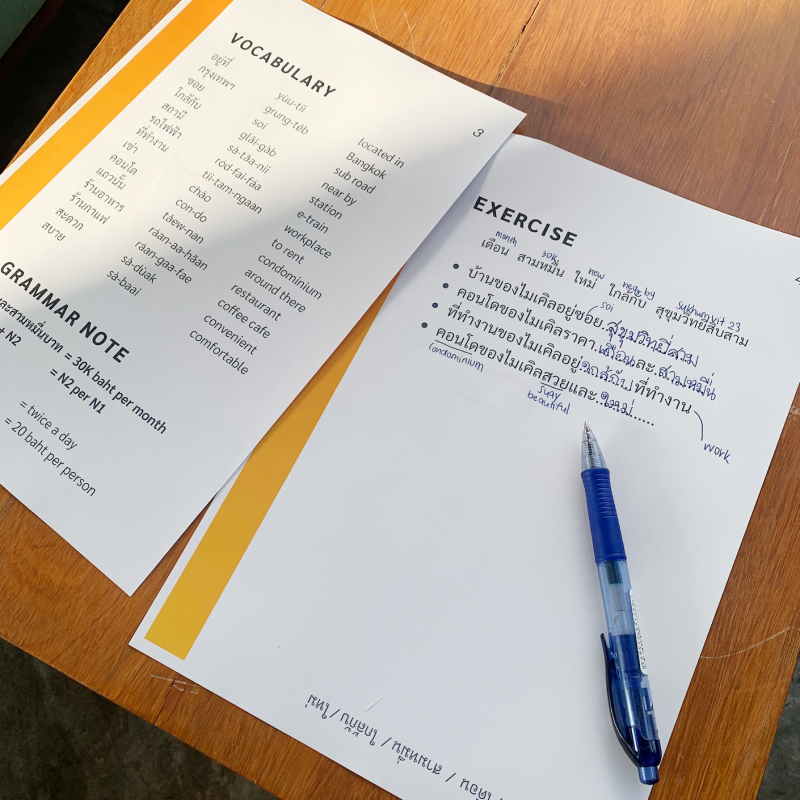 VOCABULARY
อยู่ที่ yùu-tîi located in
กรุงเทพฯ grung-têb Bangkok
ซอย soi sub road
ใกล้กับ glâi-gàb near by
สถานี sà-tǎa-nii station
รถไฟฟ้า ród-fai-fáa e-train
ที่ทำงาน tîi-tam-ngaan workplace
เช่า châo to rent
คอนโด con-do condominium
แถวนั้น tǎew-nán around there
ร้านอาหาร ráan-aa-hǎan restaurant
ร้านกาแฟ ráan-gaa-fae coffee cafe
สะดวก sà-dùak convenient
สบาย sà-baai comfortable
3
GRAMMAR NOTE
ละสามหมื่นบาท = 30K baht per month
+ N2 = N2 per N1
= twice a day
= 20 baht per person
EXERCISE
month 30K new near by Sukhumvit 23
เดือน สามหมื่น ใหม่ ใกล้กับ สุขุมวิทยี่สิบสาม
soi
บ้านของไมเคิลอยู่ซอย..สุขุมวิทยี่สาม
คอนโดของไมเคิลราคา..เดือนละ..สามหมื่น
ที่ทำงานของไมเคิลอยู่..ใกล้กับ ที่ทำงาน
คอนโดของไมเคิลสวยและ..ใหม่......
condominium suay work
beautiful
เดือน / สามหมื่น / ใกล้กับ / ใหม่